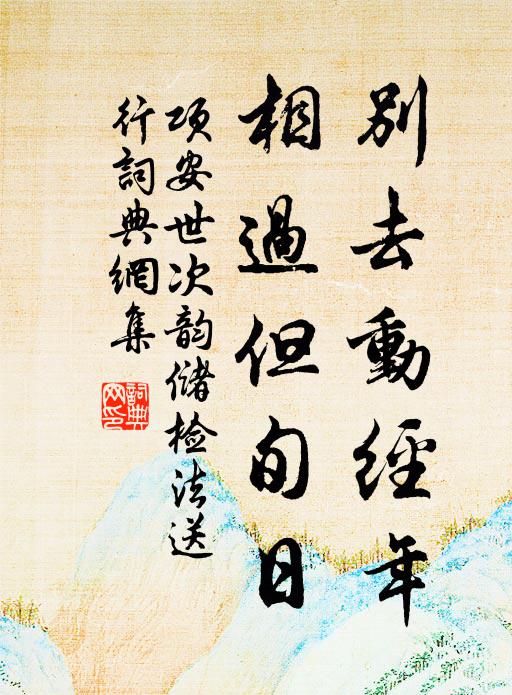 別去動經年
相過但旬日
項安世次韵儲检法送
行詞典網集
詞典
网印